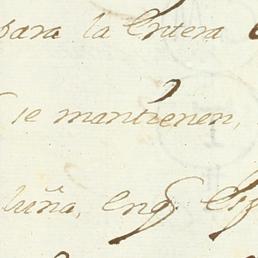 para la entera
se mantienen,
luña, enq.